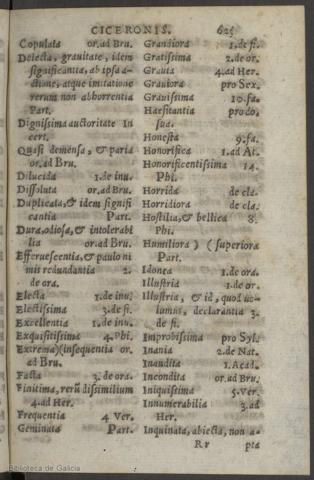 CICERONIS. 625
Copulata or.ad Bru.
Delecta, grauitate, idem
significantia, ab ipsa a-
ctione, atque imitatione
rerum non abhorrentia
Part.
Dignissima auctoritate In
cert.
Quasi demensa, & paria
or.ad Bru.
Dilucida 1.de inu.
Dissoluta or.ad Bru.
Duplicata, & idem signifi
cantia Part.
Dura, odiosa, & intolerabi
lia or.ad Bru.
Efferuescentia, & paulo ni
mis redundantia 2.
de ora.
Electa 1.de inu.
Electissima 3.de fi.
Excellentia 1.de inu.
Exquisitissima 4.Phi.
Extrema)(insequentia or.
ad Bru.
Facta 3.de ora.
Finitima, rerũ dissimilium
4.ad Her.
Frequentia 4 Ver.
Geminata Part.
Grandiora 1.de fi.
Gratissima 2.de or.
Grauia 4.ad Her.
Grauiora pro Sex.
Grauissima 10.fa.
Haesitantia pro do.
sua.
Honesta 9.fa.
Honorifica 1.ad At.
Honorificentissima 14.
Phi.
Horrida de cla.
Horridiora de cla.
Hostilia, & bellica 8.
Phi.
Humiliora)(superiora
Part.
Idonea 1.de ora.
Illustria 1.de or.
Illustria, & id, quod uo-
lumus, declarantia 3.
de fi.
Improbissima pro Syl.
Inania 2.de Nat.
Inaudita 1.Acad.
Incondita or.ad Bru.
Iniquissima 5.Ver.
Innumerabilia 3.ad
Her.
Inquinata, abiecta, non a-
Rr pta
Biblioteca de Galicia